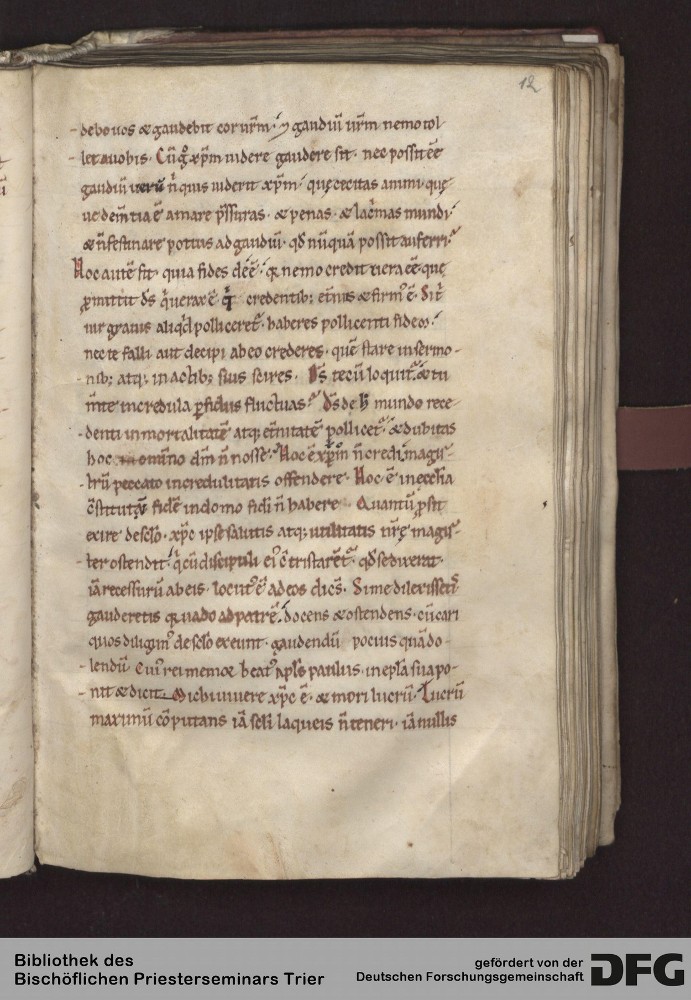 12
debo uos & gaudebit cor ur̄m. ⁊ gaudiū ur̄m nemo tol-
let a uobis. Cū gͦ xp̄m uidere gaudere sit. nec possit eē
gaudiū uerū n̄ quis uiderit xp̄m. quę cecitas animi. quę
ue dem̄tia ē amare p̄ssuras. & penas. & lac̄mas mundi.
& n̄ festinare potius ad gaudiū. qd̄ nūquā possit auferri.
Hoc autē fit. quia fides deē. qr nemo credit uera eē quę
ꝓmittit ds̄ qͥ uerax ē. cͥ credentib; et̄nus & firmͫ ē. Si t̄
uir grauis aliqͥd polliceret᷑. haberes pollicenti fidem.
nec te falli aut decipi ab eo crederes. quē stare in sermo-
nib; atq; in actib; suis scires. Ds̄ tecū loquit᷑. & tu
m̄te incredula ꝑfidus fluctuas? Ds̄ de h̄ mundo rece-
denti inmortalitatē atq; et̄nitatē pollicet᷑. & dubitas
hoc omīno dm̄ n̄ nosse. Hoc ē xp̄m n̄ credi. magis-
trū peccato incredulitatis offendere. Hoc ē in ęcclīa
c̄stitutū fidē in domo fidi n̄ habere. Quantū ꝓsit
exire de sc̄lo. xp̄c ipse salutis atq; utilitatis nr̄ę magis-
ter ostendit. qͥ cū discipuli eiͦ c̄tristarēt᷑. qd̄ se dixerat
iā recessurū ab eis. locutͫ ē ad eos dic̄s. Si me dilexisseti᷑
gauderetis qr uado ad patrē. docens & ostendens. cū cari
quos diligimͫ de sc̄lo exeunt. gaudendū pocius quā do-
lendū Cuiͦ rei memor beatͫ apl̄s paulus. in epl̄a sua po-
nit & dicit. Michi uiuere xp̄c ē. & mori lucrū. Lucrū
maximū cōputans iā sc̄li laqueis n̄ teneri. iā nullis
Bibliothek des
Bischöflichen Priesterseminars Trier
gefördert von der
Deutschen Forschungsgemeinschaft
DFG